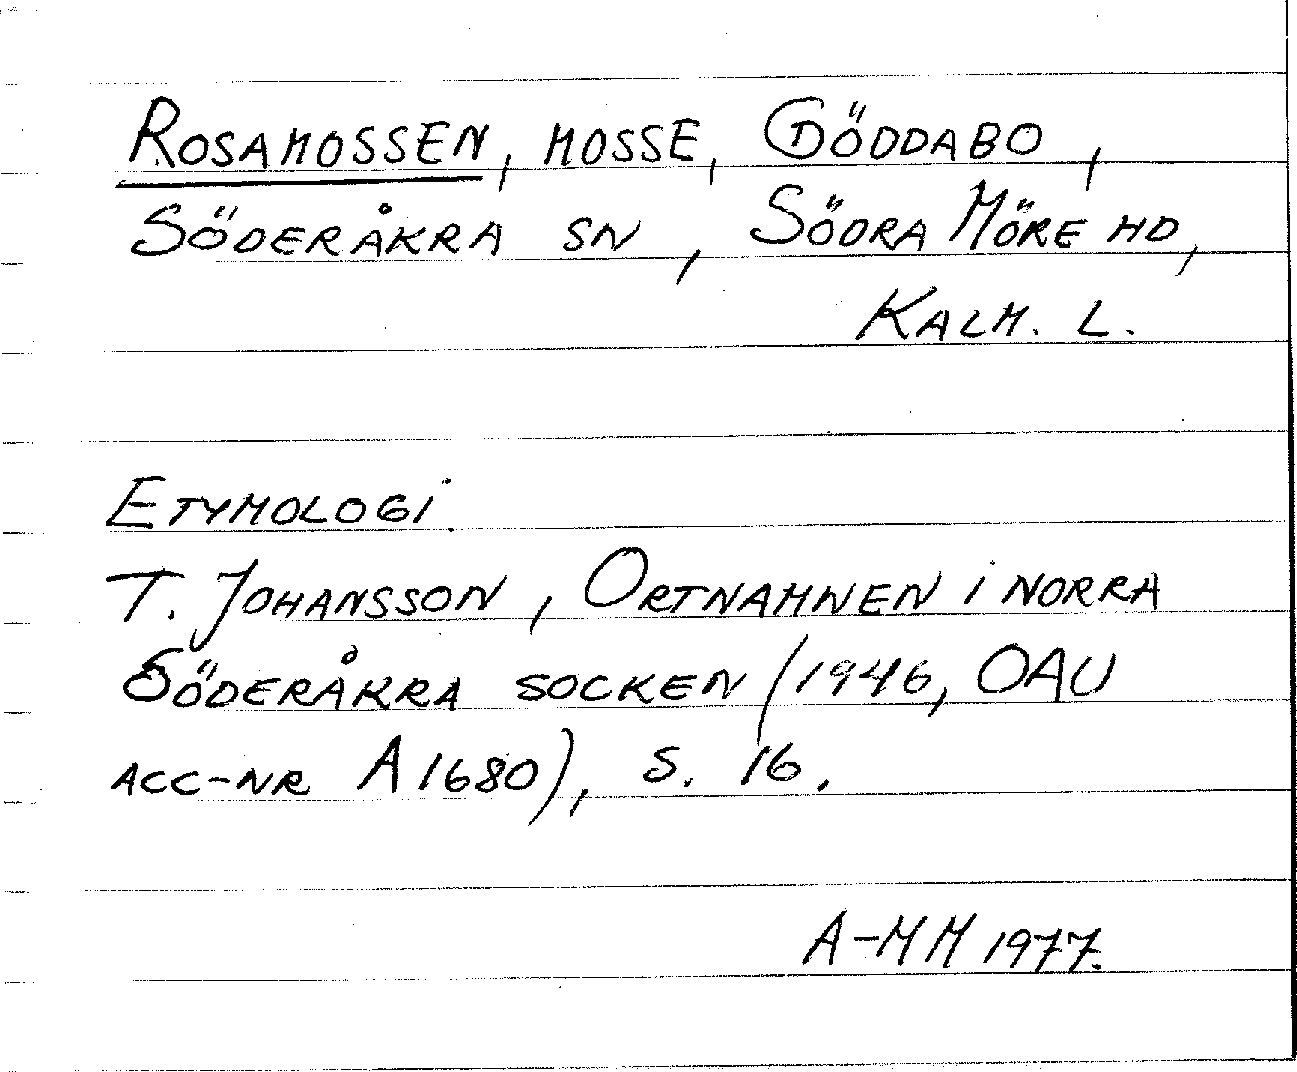 ROSAMOSSEN, MOSSE, GÖDDABO,
SÖDERÅKRA SN, SÖDRA MÖRE HD,
KALM. L.
ETYMOLOGI.
T. JOHANSSON, ORTNAMNEN I NORRA
SÖDERÅKRA SOCKEN (1946, OAU
ACC-NR A1680), S. 16.
A-MM 1977.